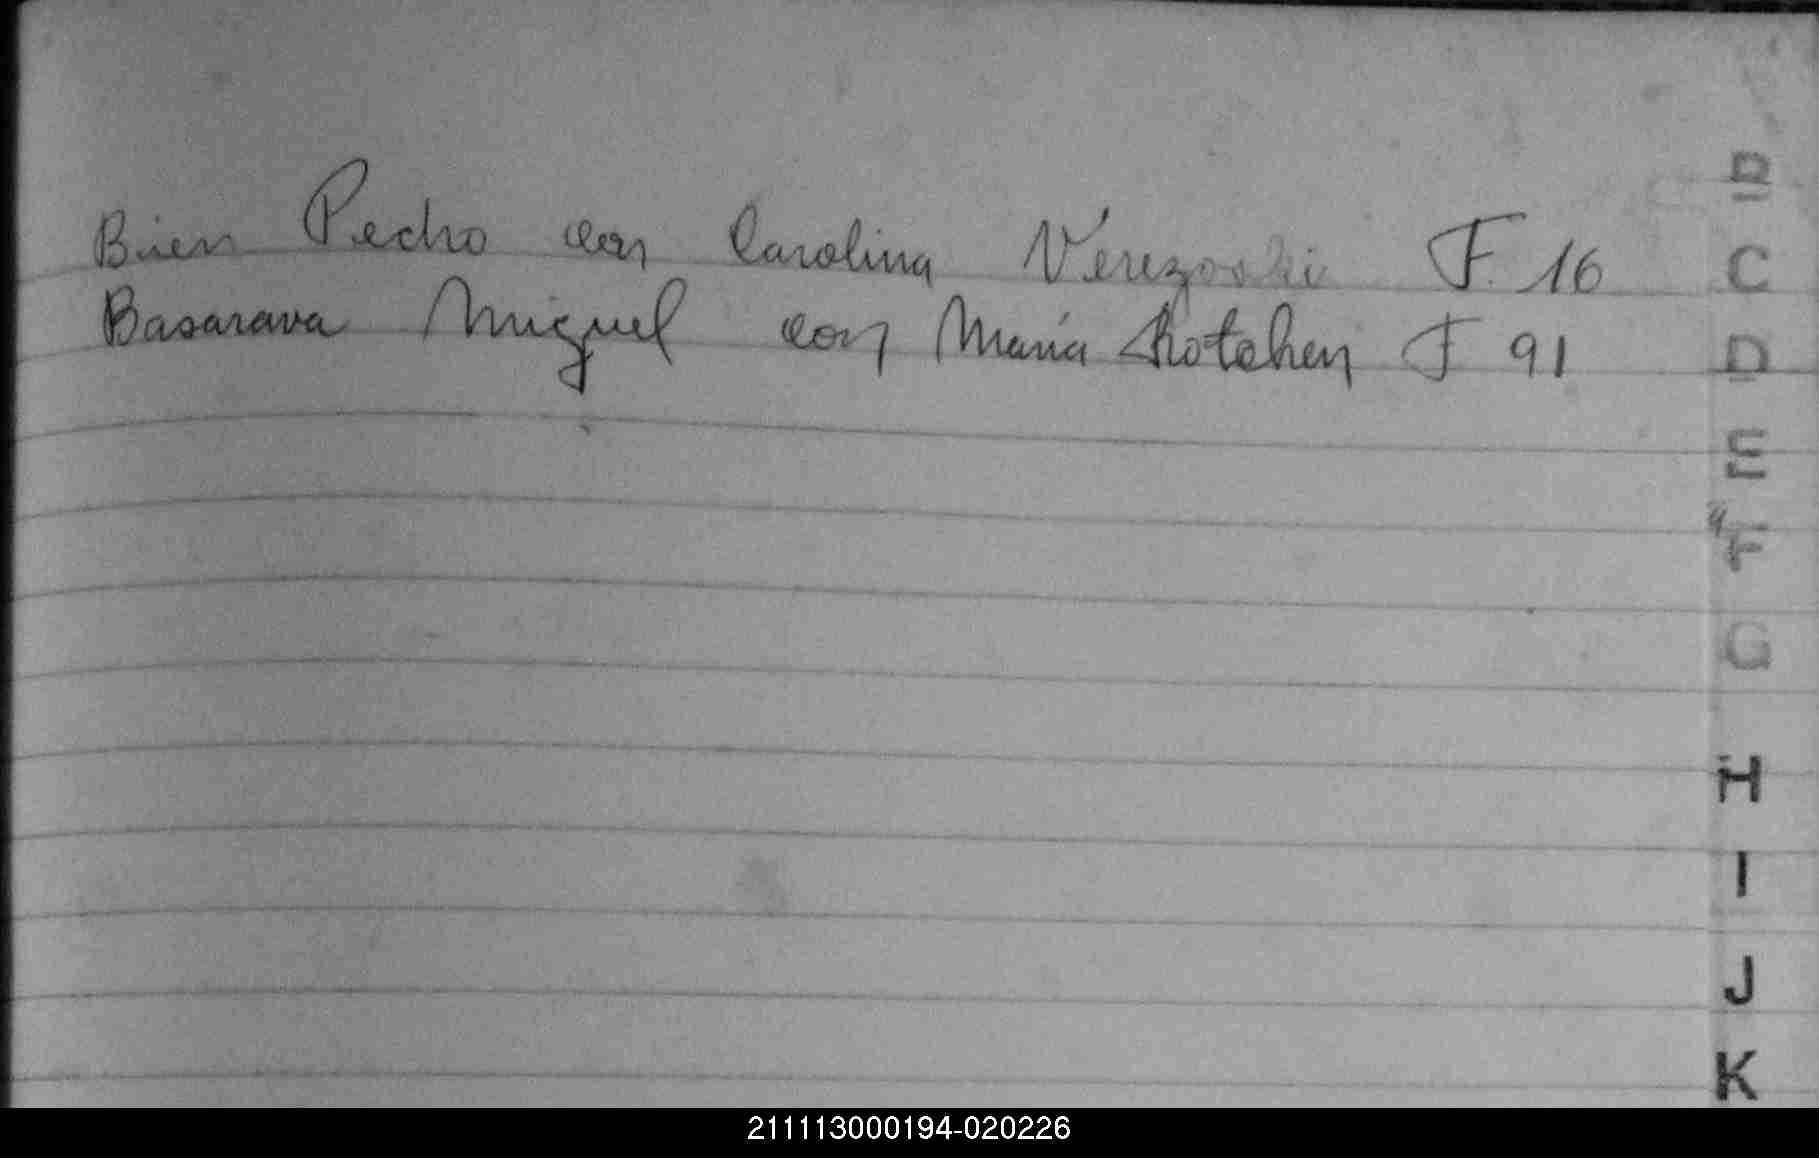 Bien Pedro con Carolina Verezoski F. 16
Basarava Miguel con María Kotchen F 91
B
C
D
E
F
G
H
I
J
K
211113000194-020226